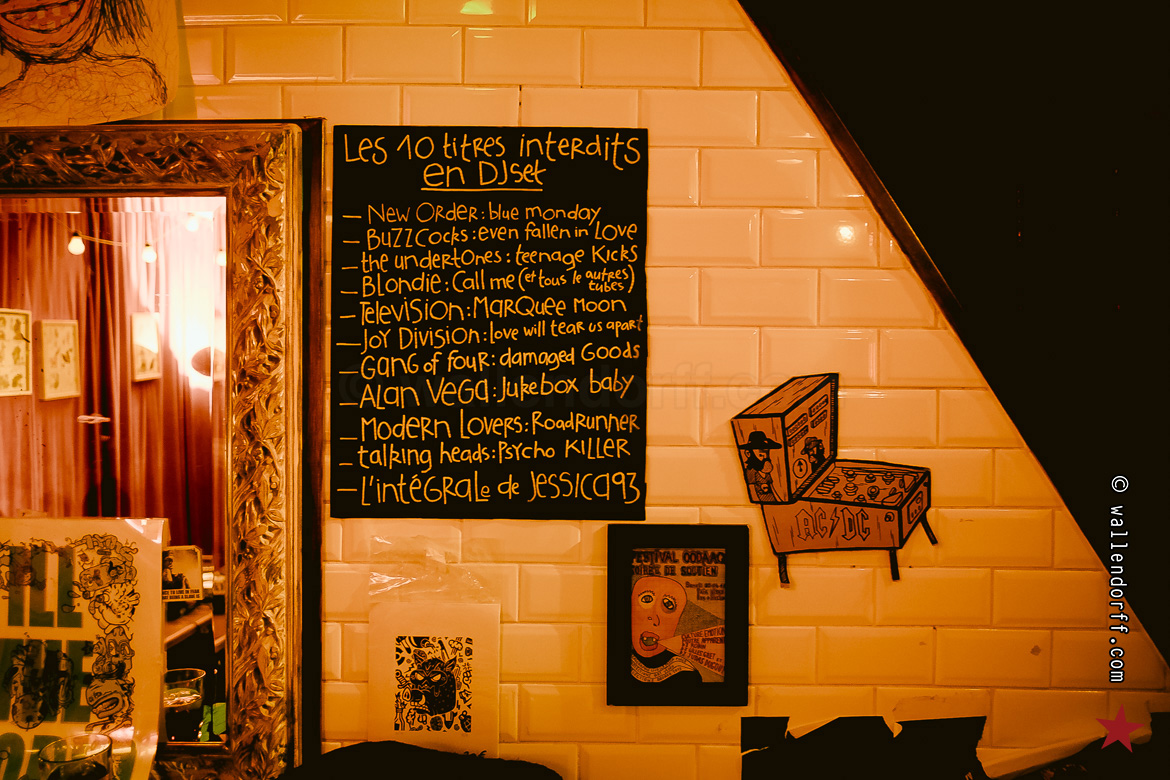 Les 10 titres interdits
en DJset
– New Order: blue monday
– BuzzCocks: even fallen in Love
– the undertones: teenage Kicks
– Blondie: Call me (et tous le autres tubes)
– Television: Marquee Moon
– Joy Division: love will tear us apart
– Gang of Four: damaged Goods
– Alan Vega: Jukebox baby
– Modern Lovers: RoadRunner
– talking heads: Psycho Killer
– L'intégrale de Jessica93
AC/DC
FESTIVAL
© wallendorff.com